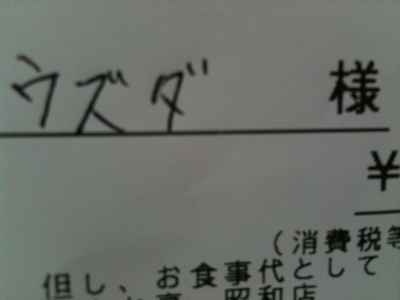 ウズダ 様
¥
(消費税等
但し、お食事代として
昭和店